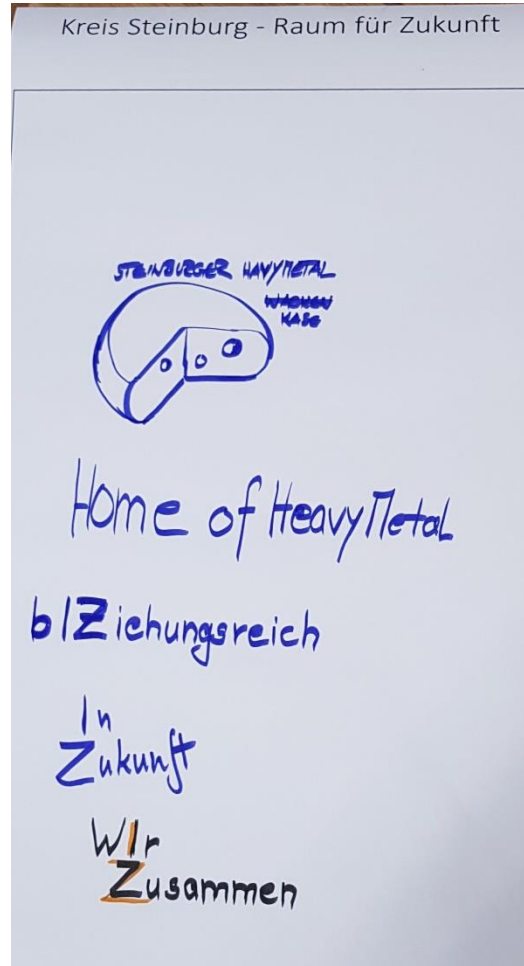 Kreis Steinburg - Raum für Zukunft
STEINBURGER HAVYMETAL
WACKEN
KÄSE
Home of Heavy Metal
bIZiehungsreich
In
Zukunft
WIr
Zusammen